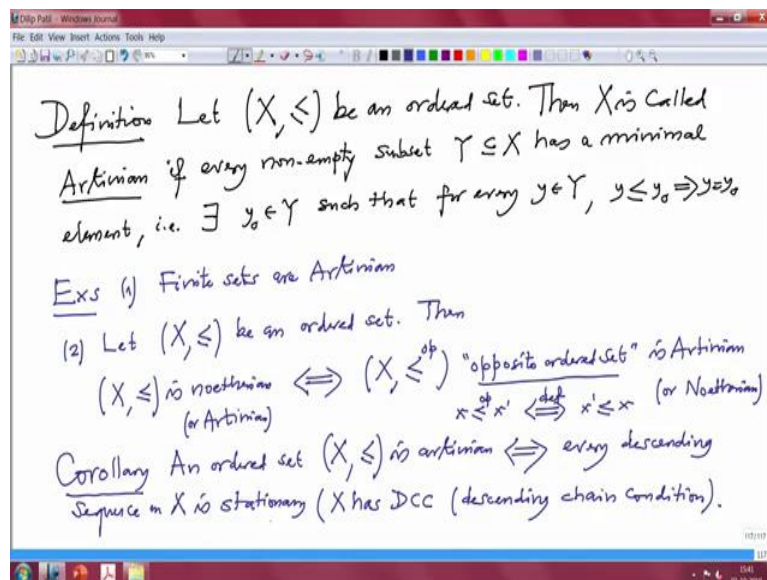 Dilip Patil - Windows Journal
File Edit View Insert Actions Tools Help
Definition Let (X, ≤) be an ordered set. Then X is called
Artinian if every non-empty subset Y ⊆ X has a minimal
element, i.e. ∃ y₀ ∈ Y such that for every y ∈ Y, y ≤ y₀ ⇒ y = y₀
Exs (1) Finite sets are Artinian
(2) Let (X, ≤) be an ordered set. Then
(X, ≤) is noetherian ⟺ (X, ≤^op) "opposite ordered set" is Artinian
(or Artinian) x ≤^op x' ⟺^def x' ≤ x (or Noetherian)
Corollary An ordered set (X, ≤) is artinian ⟺ every descending
sequence in X is stationary (X has DCC (descending chain condition).
117/117
117
15:41